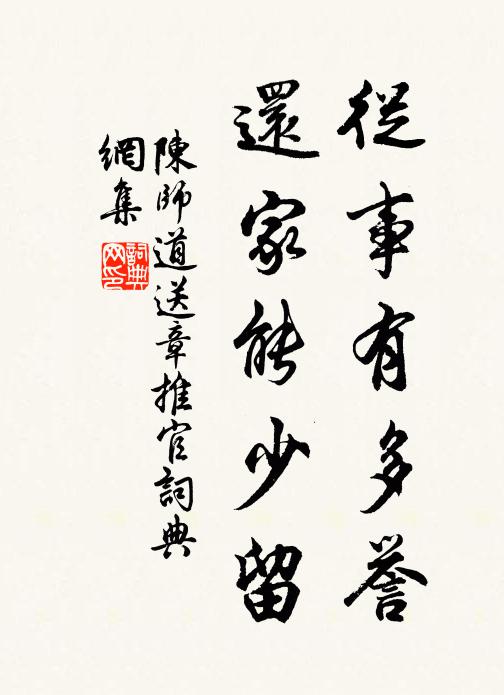 從事有多譽
還家能少留
陳師道送章推官詞典
網集
詞典网印